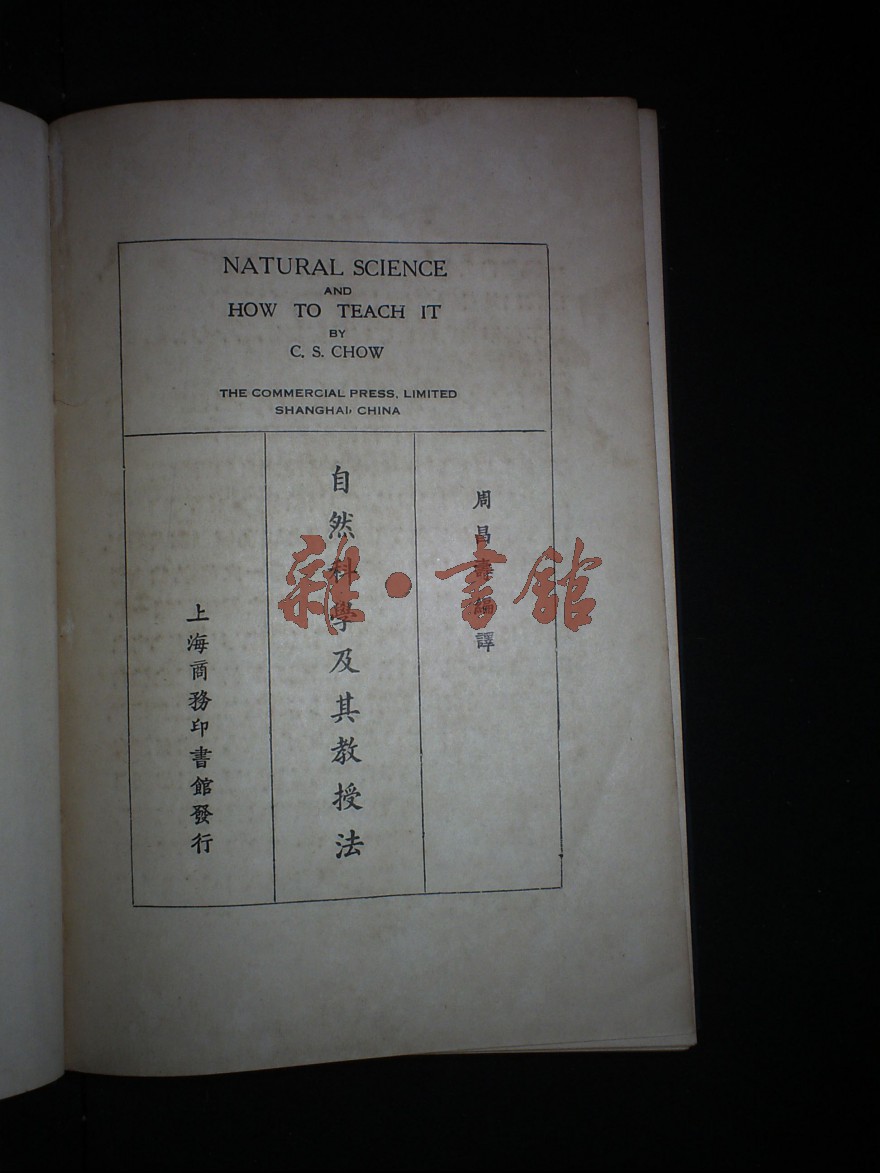 NATURAL SCIENCE
AND
HOW TO TEACH IT
BY
C. S. CHOW
THE COMMERCIAL PRESS, LIMITED
SHANGHAI, CHINA
周昌壽編譯
自然科學及其教授法
上海商務印書館發行
雜·書館